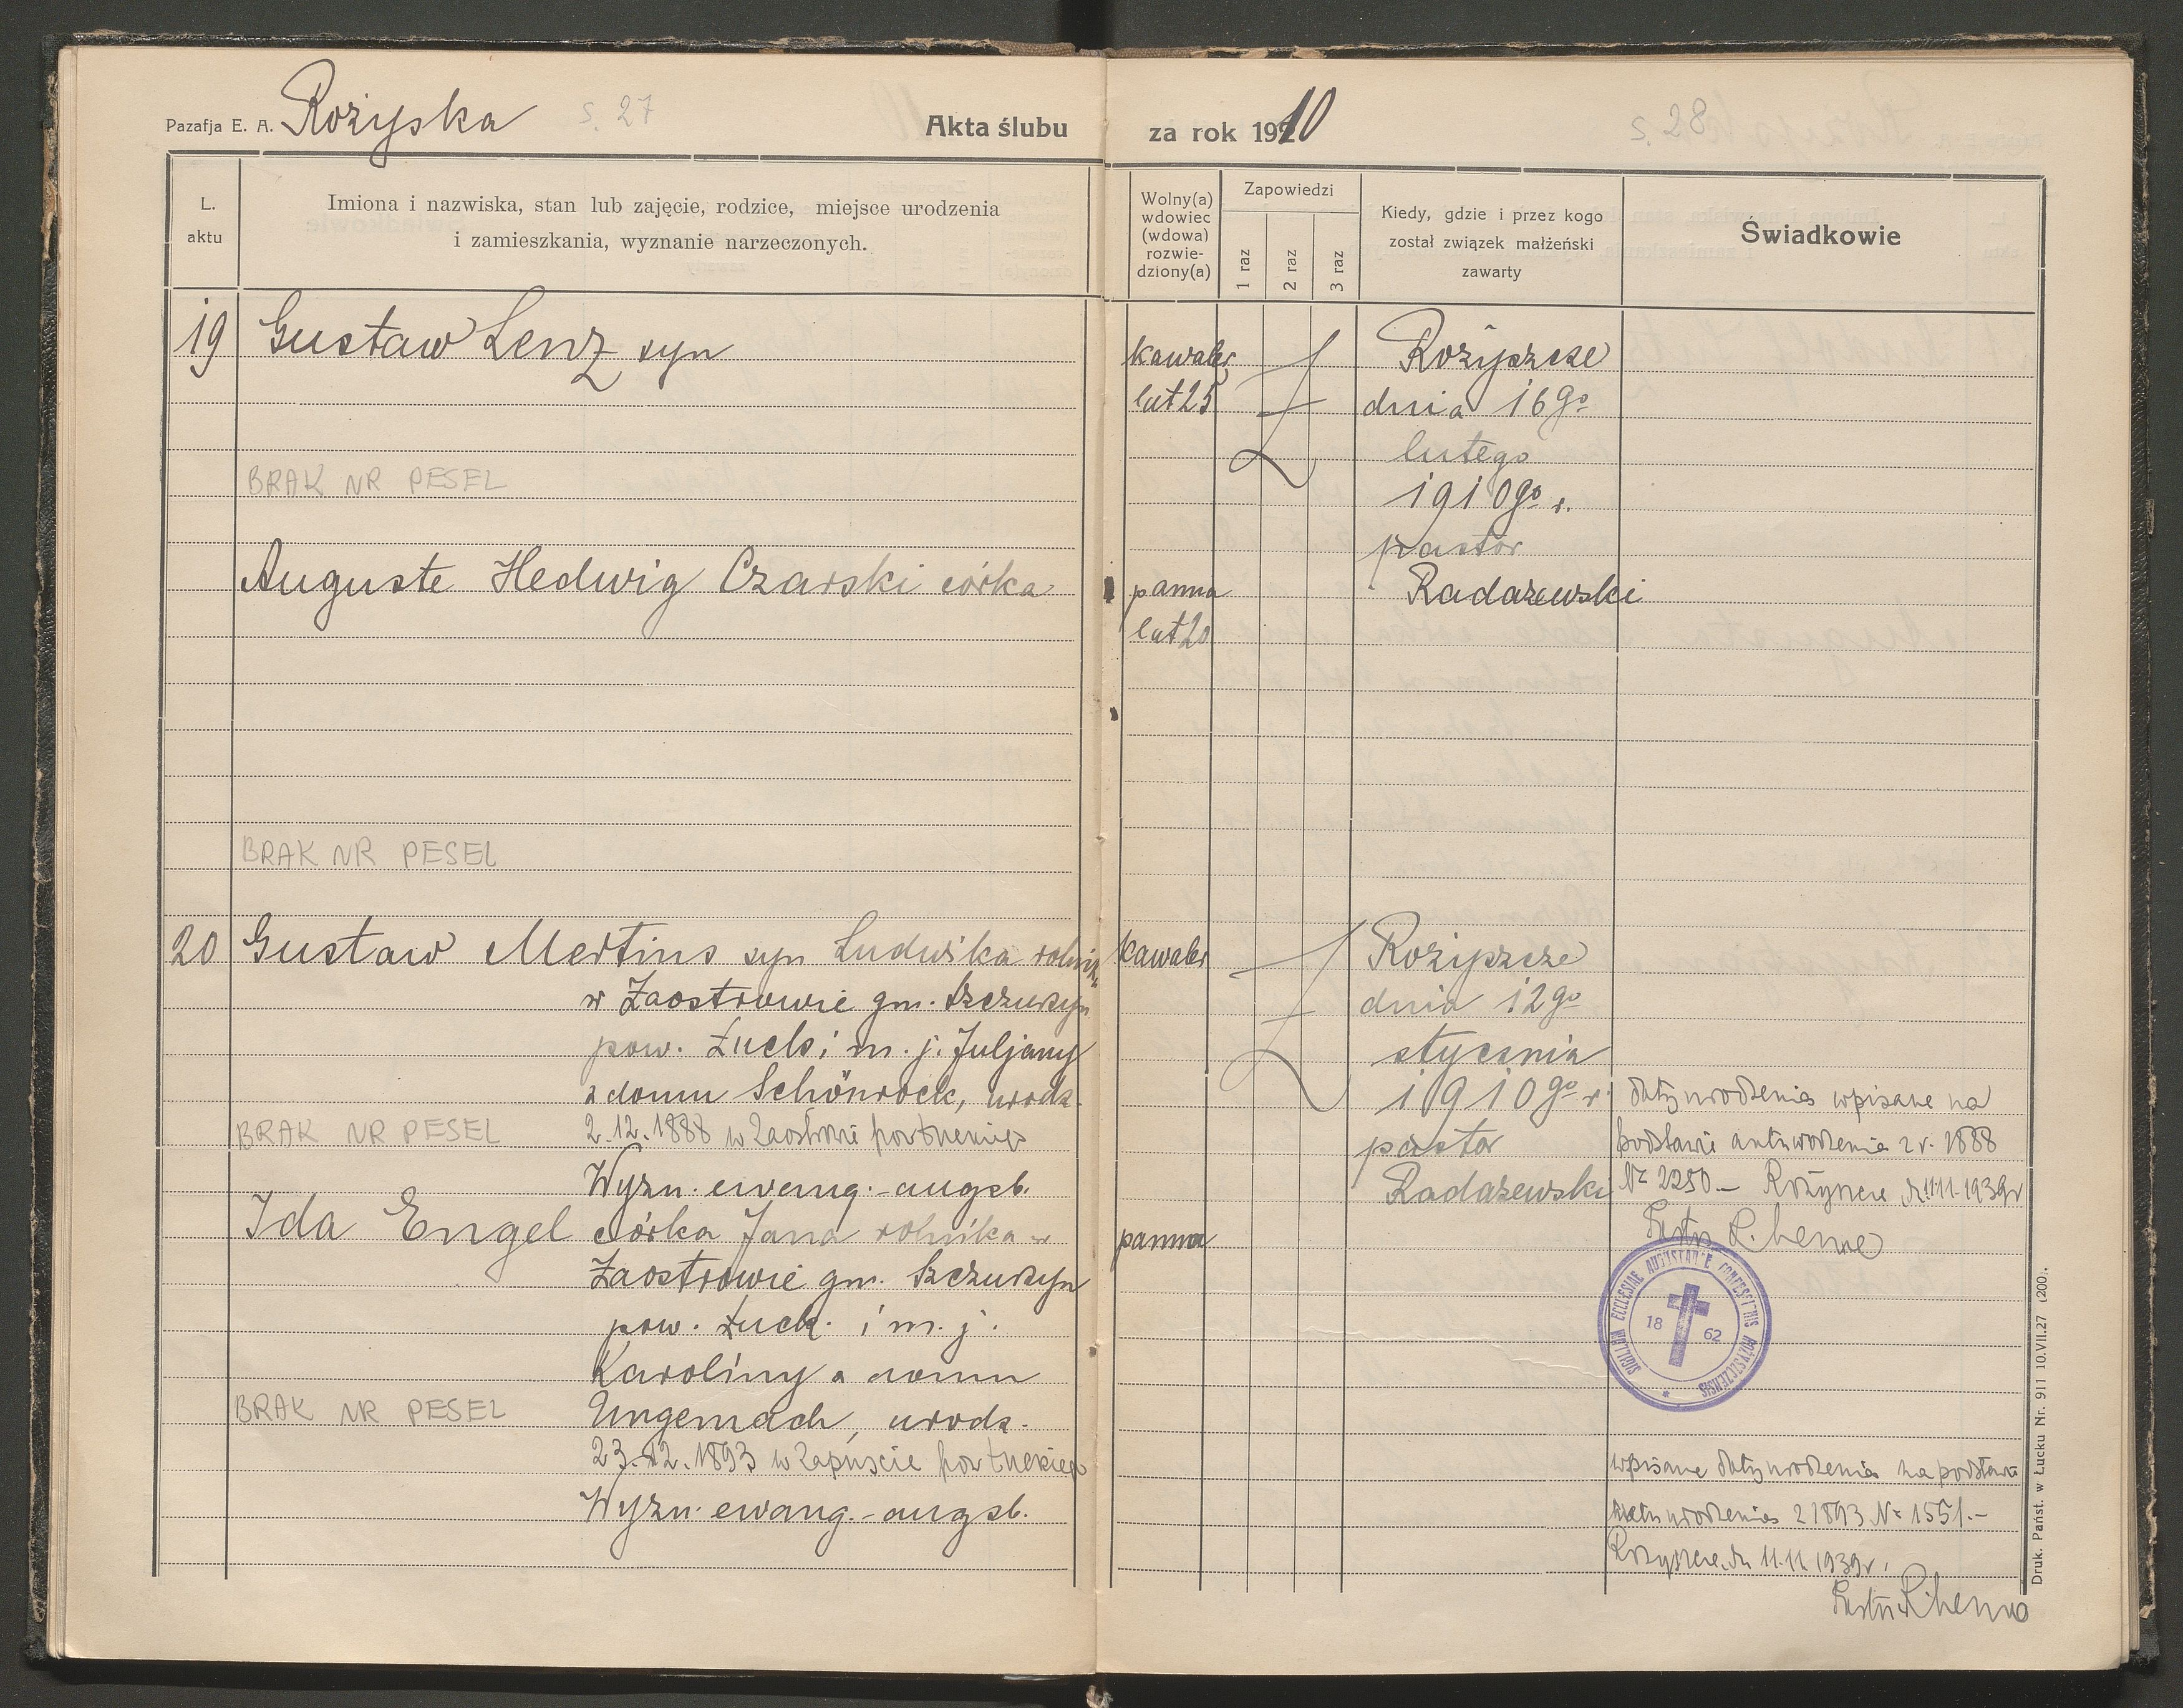 Pazafja E. A. Rożyska s. 27 Akta ślubu
L. aktu
Imiona i nazwiska, stan lub zajęcie, rodzice, miejsce urodzenia
i zamieszkania, wyznanie narzeczonych.
19 Gustaw Lenz syn
BRAK NR PESEL
Auguste Hedwig Czarski córka
BRAK NR PESEL
20 Gustaw Mertins syn Ludwika rolnika
w Zaostrowie gm. Szczurzyn
pow. Łuck i m. j. Juljany
z domu Schönrock, urodz.
BRAK NR PESEL 2.12.1888 w Zaostrowie pow Łuckiego
Wyzn. ewang.-augsb.
Ida Engel córka Jana rolnika w
Zaostrowie gm. Szczurzyn
pow. Łuck. i m. j.
Karoliny z domu
BRAK NR PESEL Ungemach, urodz.
23.12.1893 w Zapuście pow Łuckiego
Wyzn. ewang.-augsb.
za rok 1910 s. 28
Wolny(a)
wdowiec
(wdowa)
rozwie-
dziony(a)
Zapowiedzi
1 raz
2 raz
3 raz
Kiedy, gdzie i przez kogo
został związek małżeński
zawarty
Świadkowie
kawaler
lat 25
Rożyszcze
dnia 16go
lutego
1910go r.
pastor
Radaszewski
panna
lat 20
kawaler
Rożyszcze
dnia 12go
stycznia
1910go r.
pastor
Radaszewski
panna
daty urodzenia wpisane na
podstawie aktu urodzenia z r. 1888
№ 2250 – Rożyszcze d. 11.11.1939r
SIGILLUM ECCLESIAE AUGUSTANAE CONFESSIONIS ROŻYSZCZENSIS
18 62
wpisane daty urodzenia na podstawie
aktu urodzenia z 1893 № 1551.–
Rożyszcze, dn 11.11.1939r.
Druk. Państ. w Łucku Nr. 911 10.VII.27 (200).